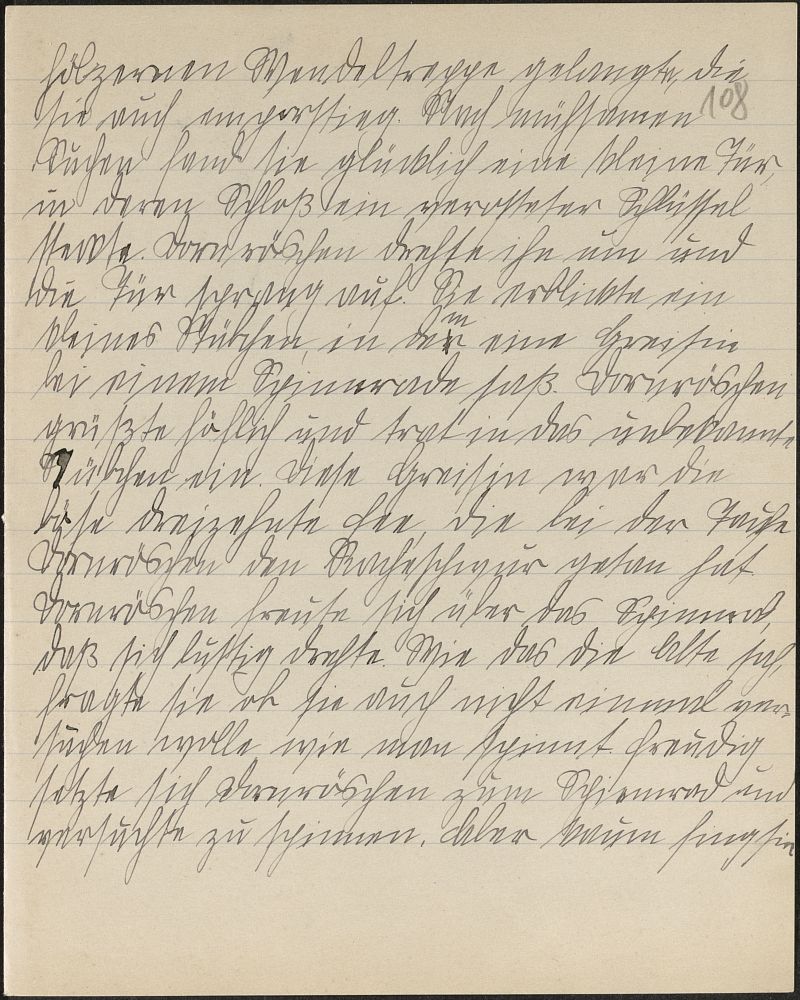 hölzernen Wendeltreppe gelangte, die
108
sie auch emporstieg. Nach mühsamen
Suchen fand sie glücklich eine kleine Tür,
in deren Schloß ein verosteter Schlüssel
steckte. Dornröschen drehte ihn um und
die Tür sprang auf. Sie erblickte ein
kleines Stübchen, in dem eine Greisin
bei einem Spinnrade saß. Dornröschen
grüßte höflich und trat in das unbekannte
Stübchen ein. Diese Greisin war die
böse dreizehnte Fee, die bei der Taufe
Dornröschen den Racheschwur getan hat.
Dornröschen freute sich über das Spinnrad,
daß sich lustig drehte. Wie das die Alte sah,
fragte sie ob sie auch nicht einmal ver-
suchen wolle wie man spinnt. Freudig
setzte sich Dornröschen zum Spinnrad und
versuchte zu spinnen. Aber kaum fing sie